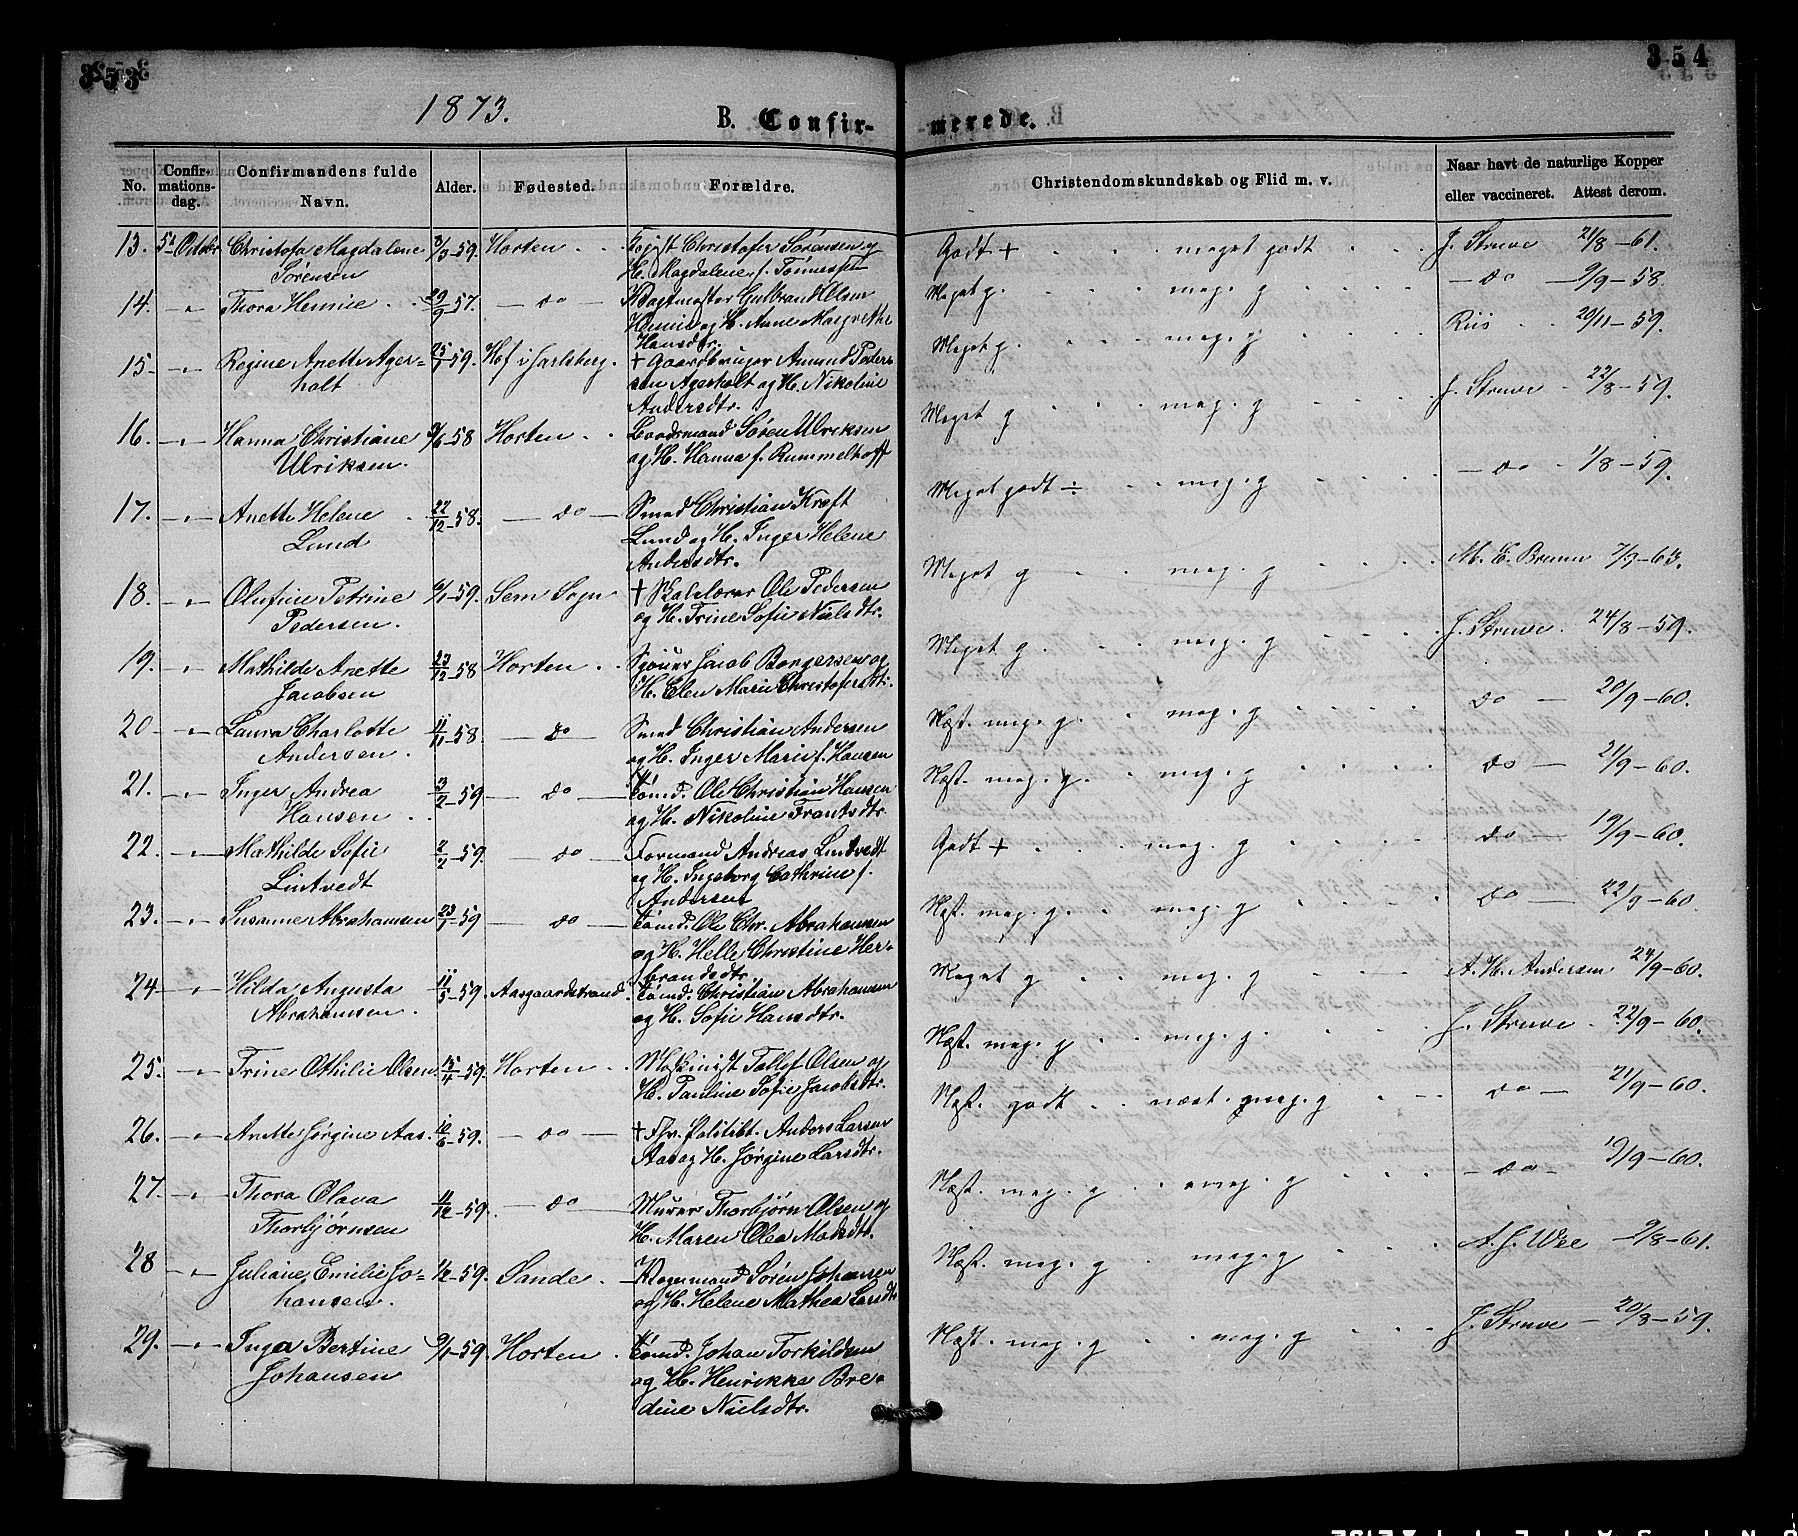 353
354
1873.
B. Confir-
merede.
No.
Confir-
mations-
dag.
Confirmandens fulde
Navn.
Alder.
Fødested.
Forældre.
Christendomskundskab og Flid m. v.
Naar havt de naturlige Kopper
eller vaccineret.
Attest derom.
13. 5te Octbr Christofa Magdalene 3/3-59. Horten Christofer Sørensen og
Sørensen H. Magdalene f. Tönnessen
Godt + meget godt J. Struve 21/8-61.
14. -"- Thora Hennie 29/9-57. -do- Vagtmester Gulbrand Olsen
Hennie og H. Anne Margrethe
Hansdtr.
Meget g. meg. g -do- 9/9-58.
15- -"- Regine Anette Ager- 25/7-59. Hof i Jarlsberg. + Gaardbruger Amund Peder-
holt sen Agerholt og H. Nikoline
Andersdtr.
Meget g. meg. g Riis 20/11-59.
16. -"- Hanna Christiane 9/6-58 Horten Baadsmand Søren Ulriksen
Ulriksen. og H. Hanna f. Rummelhoff
Meget g meg. g J. Struve 22/8-59.
17. -"- Anette Helene 22/12-58. -do- Smed Christian Kraft
Lund Lund og H. Inger Helene
Andersdtr.
Meget godt ÷ meg. g -do- 1/8-59.
18. -"- Olufine Petrine 6/1-59. Sem Sogn + Skolelærer Ole Pedersen
Pedersen. og H. Trine Sofie Nielsdtr.
Meget g meg. g M. E. Bruun 7/9-63.
19. " Mathilde Anette 23/12-58 Horten Sjøuer Jacob Borgersen og
Jacobsen H. Elen Marie Christofersdtr.
Meget g meg. g J. Struve. 24/8-59.
20 -"- Laura Charlotte 11/11-58. -do- Smed Christian Andersen
Andersen og H. Inger Marie f. Hansen
Næst. meg. g. meg. g do - 20/9-60.
21. -"- Inger Andrea 3/2-59 -do- Tømd. Ole Christian Hansen
Hansen og H. Nikoline Frantsdtr.
Næst. meg. g. meg. g do - 21/9-60.
22. -"- Mathilde Sofie 2/2-59. -do- Formand Andreas Lintvedt
Lintvedt og H. Ingeborg Cathrine f.
Andersen
Godt + meg. g do - 19/9-60.
23. -"- Susanne Abrahamsen 23/1-59 -do- Tømd. Ole Chr. Abrahamsen
og H. Helle Christine Her-
brandsdtr.
Næst. meg. g. meg. g do - 22/9-60.
24 -"- Hilda Augusta 11/5-59. Aasgaardstrand Tømd. Christian Abrahamsen
Abrahamsen. og H. Sofie Hansdtr.
Meget g meg. g A. H. Andersen 24/9-60.
25. -"- Trine Othilie Olsen 15/4-59. Horten Maskinist Tallef Olsen og
H. Pauline Sofie Jacobsdtr.
Næst. meg. g meg. g. J. Struve 22/9-60.
26. -"- Anette Jørgine Aas. 10/6-59. -do- + Fhv. Politibt. Anders Larsen
Aas og H. Jørgine Larsdtr.
Næst. godt næst. meg. g do - 21/9-60.
27. -"- Thora Olava 11/12-59. -do- Murer Thorbjörn Olsen og
Thorbjørnsen H. Maren Olea Matsdtr.
Næst. meg. g meg. g -do- 19/9-60.
28 -"- Juliane Emilie Jo- 1/2-59. Sande Søren Johansen
hansen. og H. Helene Mathea Larsdtr
Næst. meg. g meg. g A. J. Wee 9/8-61.
29. -"- Inga Bertine 9/1-59. Horten Tømd. Johan Torkildsen
Johansen og H. Henrikke Bre-
dine Nielsdtr.
Næst. meg. g meg. g J. Struve 20/8-59.